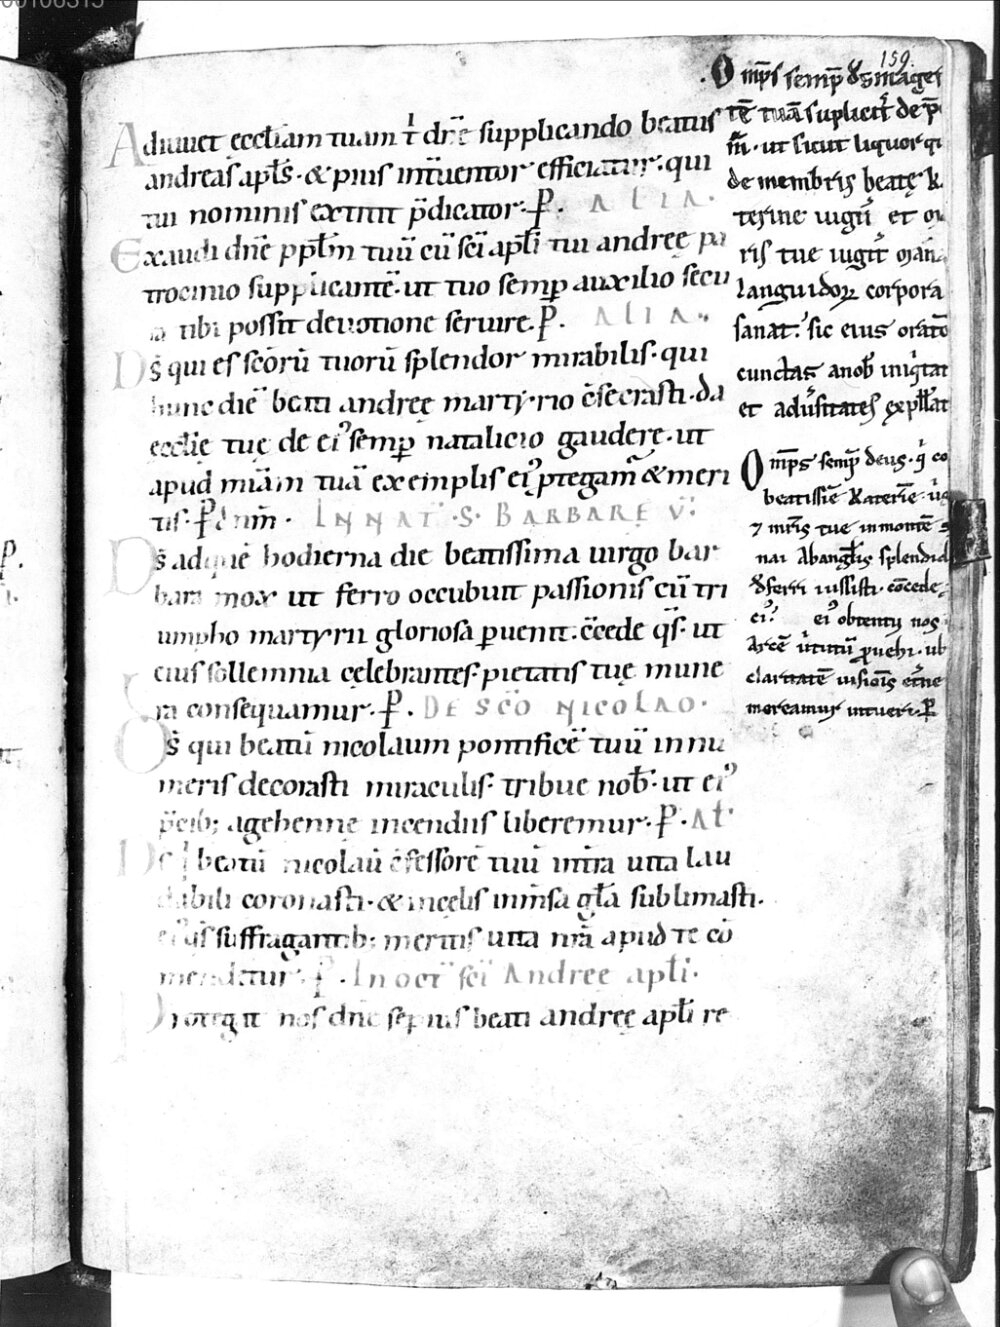 159.
Adiuuet ęccłiam tuam t̄ dn̄e supplicando beatus
andreas apłs· & pius int̄uentor efficiatur· qui
tui nominis extitit p̄dicator· P. ALIA·
Exaudi dn̄e ppłm tuū cū sc̄i apłi tui andreę pa
trocinio supplicantē· ut tuo semꝑ auxilio secu
ra tibi possit deuotione seruire. P. ALIA·
Ds̄ qui es sc̄orū tuorū splendor mirabilis· qui
hunc diē beati andreę martyrio c̄secrasti· da
ęcclię tuę de ei᾽ semꝑ natalicio gaudere· ut
apud miām tuā exemplis ei᾽ ꝓtegam̄ & meri
tis· P dn̄m· IN NAT̄ ·S· BARBARĘ V̄·
Ds̄ ad quē hodierna die beatissima uirgo bar
bara mox ut ferro occubuit passionis cū tri
umpho martyrii gloriosa ꝑuenit· c̄cede qs̄· ut
eius sollemnia celebrantes· pietatis tuę mune
ra consequamur· P. DE SC̄O NICOLAO·
Ds̄ qui beatū nicolaum pontificē tuū innu
meris decorasti miraculis· tribue nob̄· ut ei᾽
p̄cib; a gehennę incendiis liberemur· P· Ał
Ds̄ q̄ beatū nicolaū c̄fessorē tuū intra uita lau
dabili coronasti· & in cęlis inm̄sa gła sublimasti·
ei᾽ qs̄ suffragantib; meritis uita nrā apud te cō
mendetur· P· In oct̄ sc̄i Andreę apłi·
Protegat nos dn̄e sepius beati andreę apłi re
Omp̄s semp̄ ds̄ mages
tē tuā suplicit̄ dep̄
m̄· ut sicut liquor q
de membris beatę K
terine uigīī et
ris tue uigit
languidoꝝ corpora
sanat· sic eius oratō
cunctas a nob̄ iniq̄tat
et adūsitates expłłat
Omp̄s semp̄ deus· q̄ co
beatissiē Katerīe
⁊ mr̄is tue in montē s
nai Ab angłis splendid
d̄ferri iussisti· c̄ocede
ei᾽ ei᾽ obtentu nos
Arcē ūtutū ꝓuehi· ub
claritatē uisiōis et̄ne
mereamur intueri· P